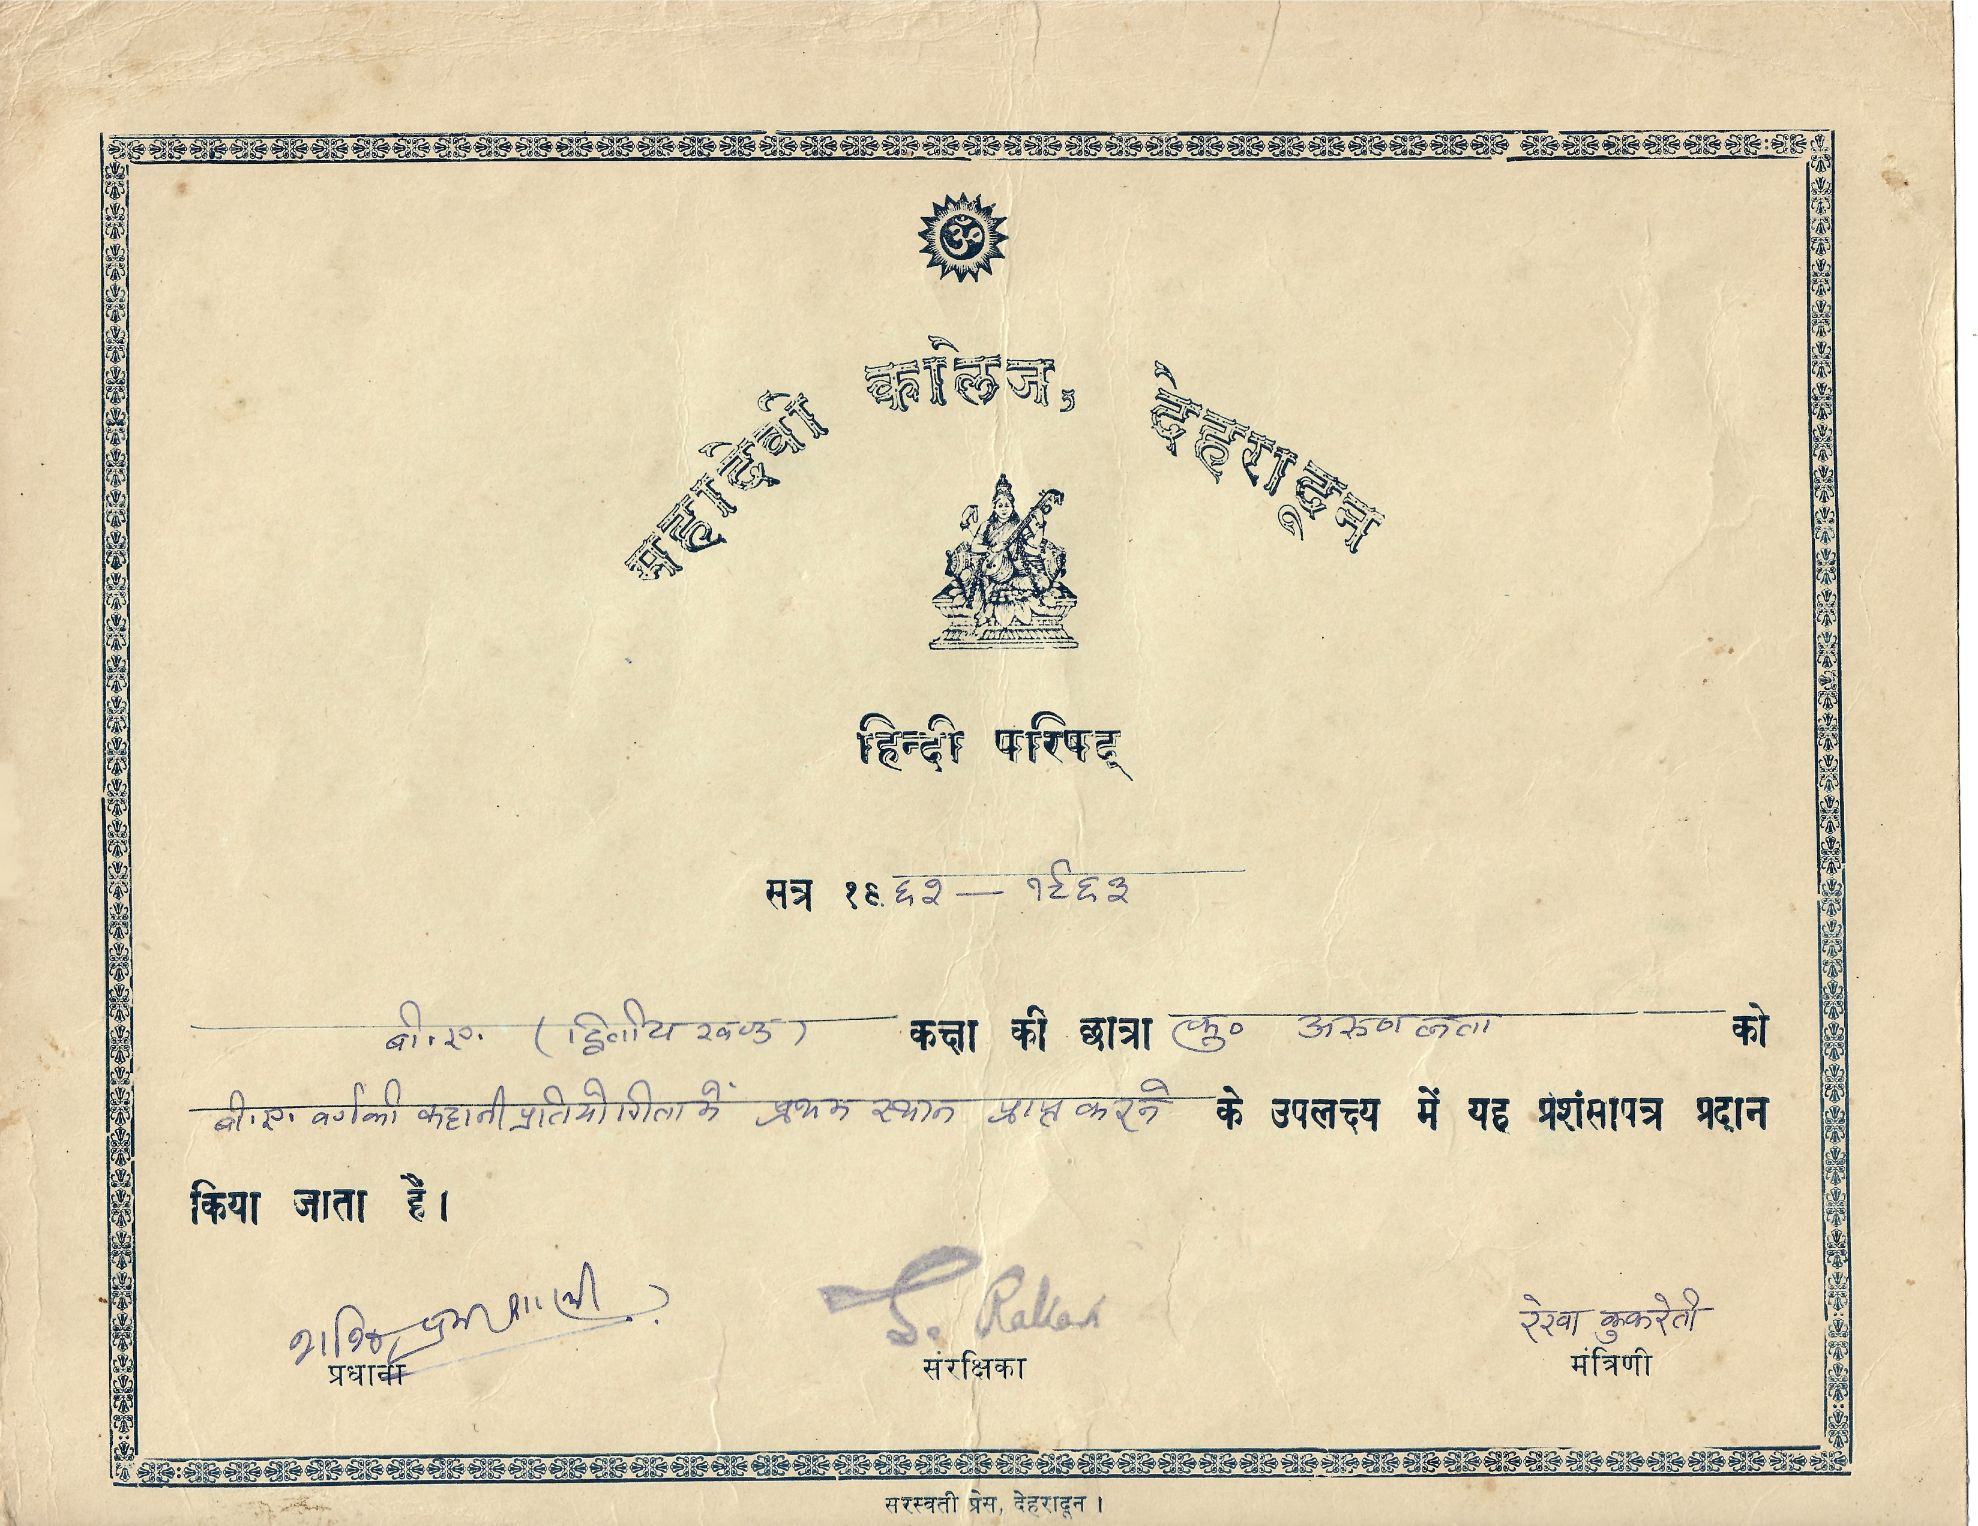 ॐ
महादेवी कालेज, देहरादून
हिन्दी परिषद्
सत्र १९६२ — १९६३
बी.ए. (द्वितीय खण्ड) कक्षा की छात्रा कु० अरुण लता को
बी.ए. वर्ग की कहानी प्रतियोगिता में प्रथम स्थान प्राप्त करने के उपलक्ष्य में यह प्रशंसापत्र प्रदान
किया जाता है।
S. Rallan रेखा कुकरेती
प्रधाना संरक्षिका मंत्रिणी
सरस्वती प्रेस, देहरादून।